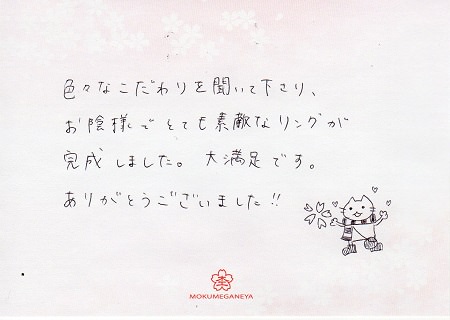 色々なこだわりを聞いて下さり、
お陰様でとても素敵なリングが
完成しました。大満足です。
ありがとうございました!!
MOKUMEGANEYA